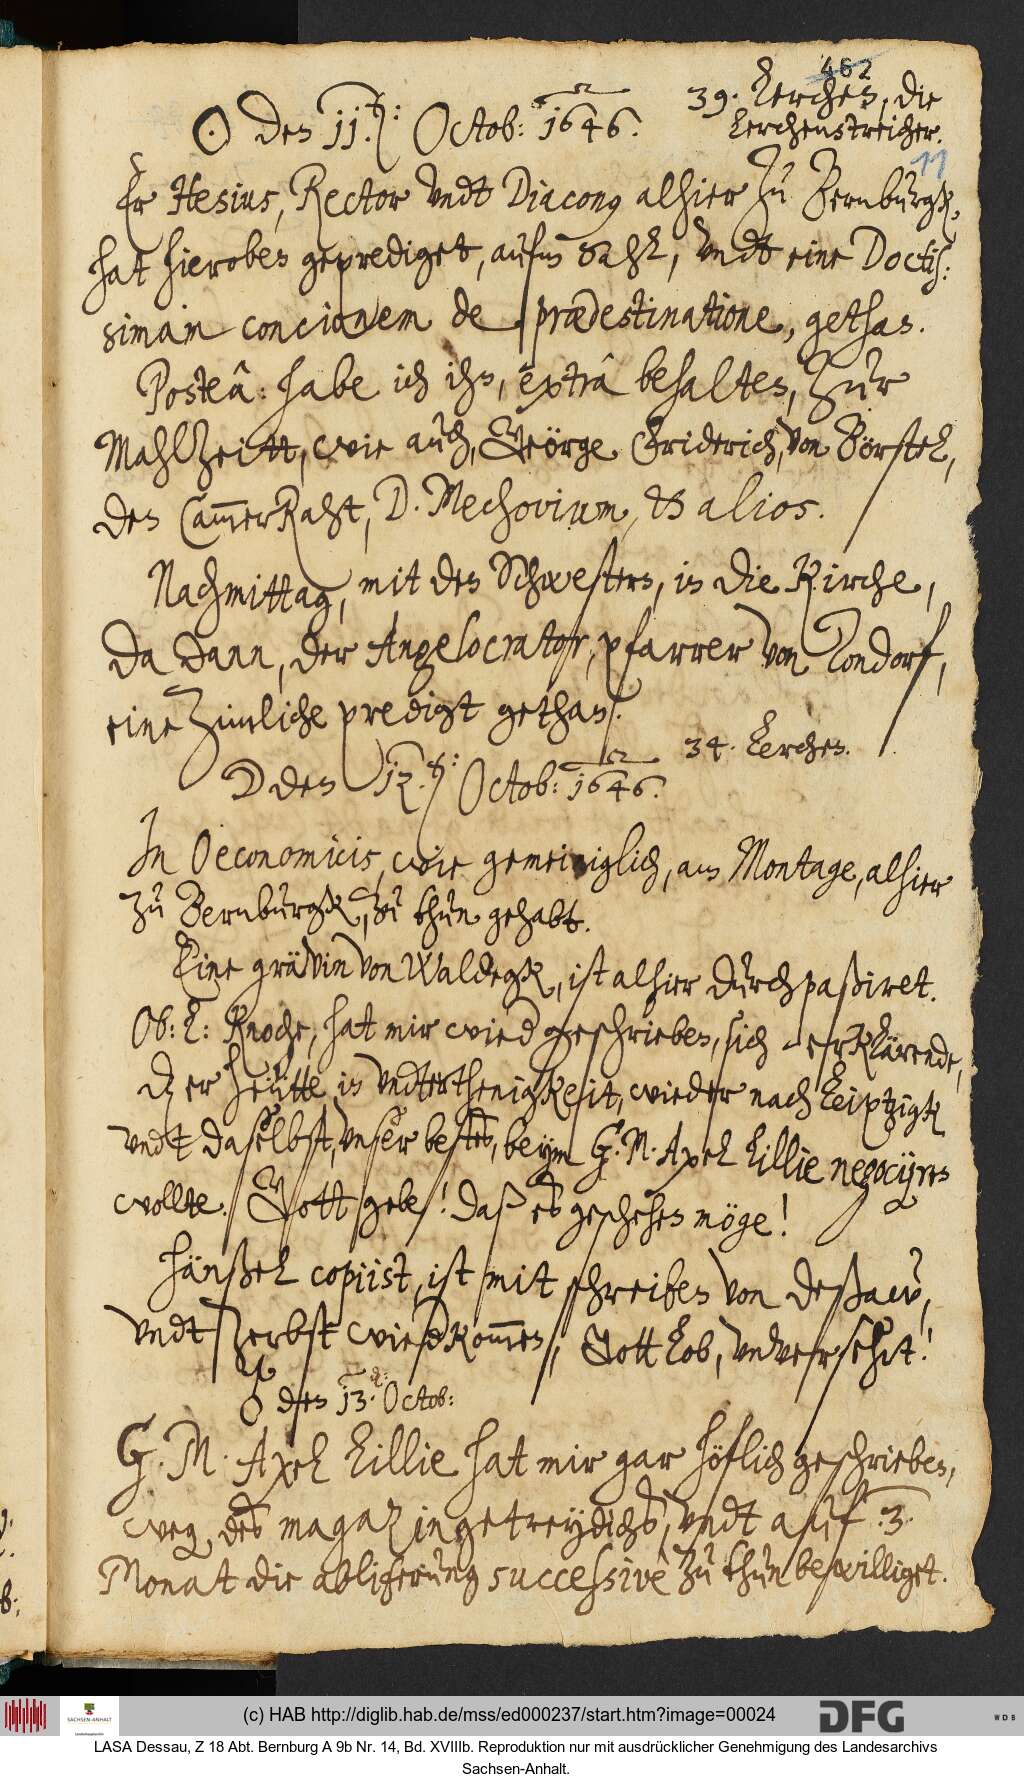 462
39. Lerchen, die
Lerchenstreicher.
11
☉ den 11.ten: Octob: 1646.
Er Hesius, Rector vndt Diaconus alhier zu Bernburgk,
hat hieroben geprediget, aufm Sahl, vndt eine Doctis-
simam concionem de prædestinatione, gethan.
Posteâ: habe ich ihn, extrâ behalten, zur
Mahlzeitt, wie auch, Geörge Friderich, von Börstel,
den CammerRaht, D. Mechovium, & alios.
Nachmittag, mit den Schwestern, in die Kirche,
da dann, der Angelocrator, pfarrer von Londorf,
eine zimliche predigt gethan.
34. Lerchen.
☽ den 12.ten: Octob: 1646.
In Oeconomicis, wie gemeiniglich, am Montage, alhier
zu Bernburgk, zu thun gehabt.
Eine grävin von Waldegk, ist alhier durchpaßiret.
Ob: L: Knoche, hat mir wied geschrieben, sich erklärende,
dz er heütte in vndterthenigkeit, wieder nach Leiptzigk
vndt daselbst, vnser bestes, beym G. M. Axel Lillie negocijren
wollte. Gott gebe! daß es geschehen möge!
Hänßel copiist, ist mit schreiben von Deßaw,
vndt Zerbst wiedkommen, Gott lob, vnversehrt!
♂ den 13. Octob:
G. M. Axel Lillie hat mir gar höflich geschrieben,
weg. des magazingetreydichs, vndt auf 3.
Monat die abliferung successivè zu thun bewilliget.
(c) HAB http://diglib.hab.de/mss/ed000237/start.htm?image=00024
SACHSEN-ANHALT
DFG
WDB
LASA Dessau, Z 18 Abt. Bernburg A 9b Nr. 14, Bd. XVIIIb. Reproduktion nur mit ausdrücklicher Genehmigung des Landesarchivs
Sachsen-Anhalt.